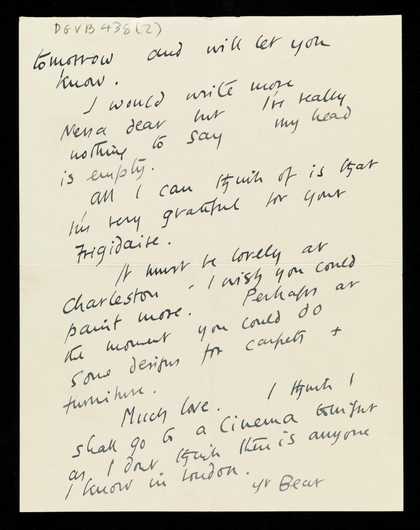 DGVB 438 (2)
tomorrow and will let you
know.
I would write more
Nessa dear but I've really
nothing to say my head
is empty.
All I can think of is that
I'm very grateful for your
Frigidaire.
It must be lovely at
Charleston - I wish you could
paint more. Perhaps at
the moment you could do
some designs for carpets +
furniture.
Much love. I think I
shall go to a Cinema tonight
as I dont think there is anyone
I know in London.
yr Bear